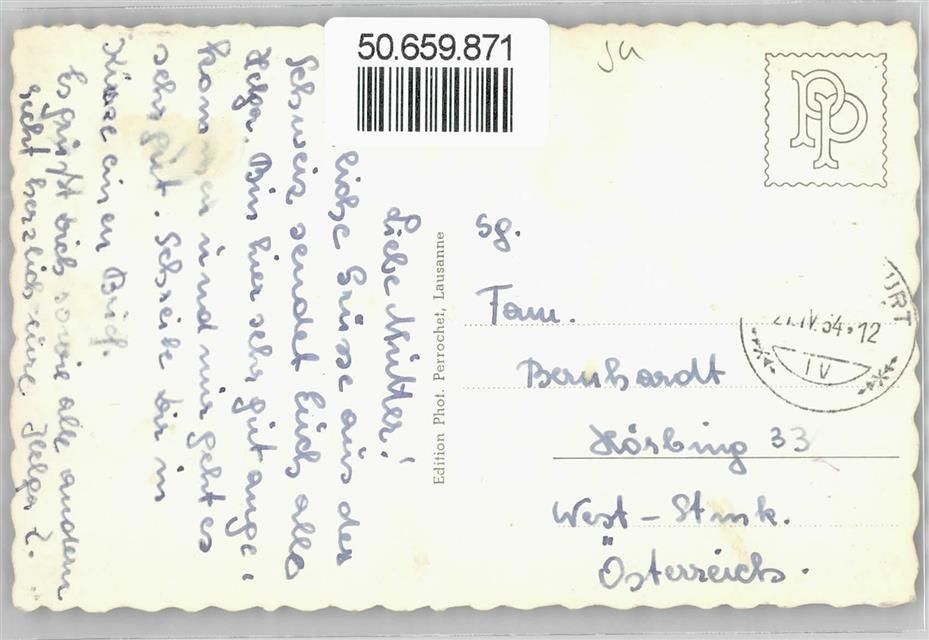 50.659.871
Ja
PP
Liebe Mutter!
liche Grüsse aus der
Schweiz sendet Euch alle
Helga. Bin hier sehr gut ange-
kommen und mir geht es
sehr gut. Schreibe dir in
Kürze einen Brief.
Es grüßt dich sowie alle andern
recht herzlich eure Helga Z.
Edition Phot. Perrochet, Lausanne
URT
21.IV.54.12
IV
Sg.
Fam.
Bernhardt
Hörbing 33
West-Stmk.
Österreich.